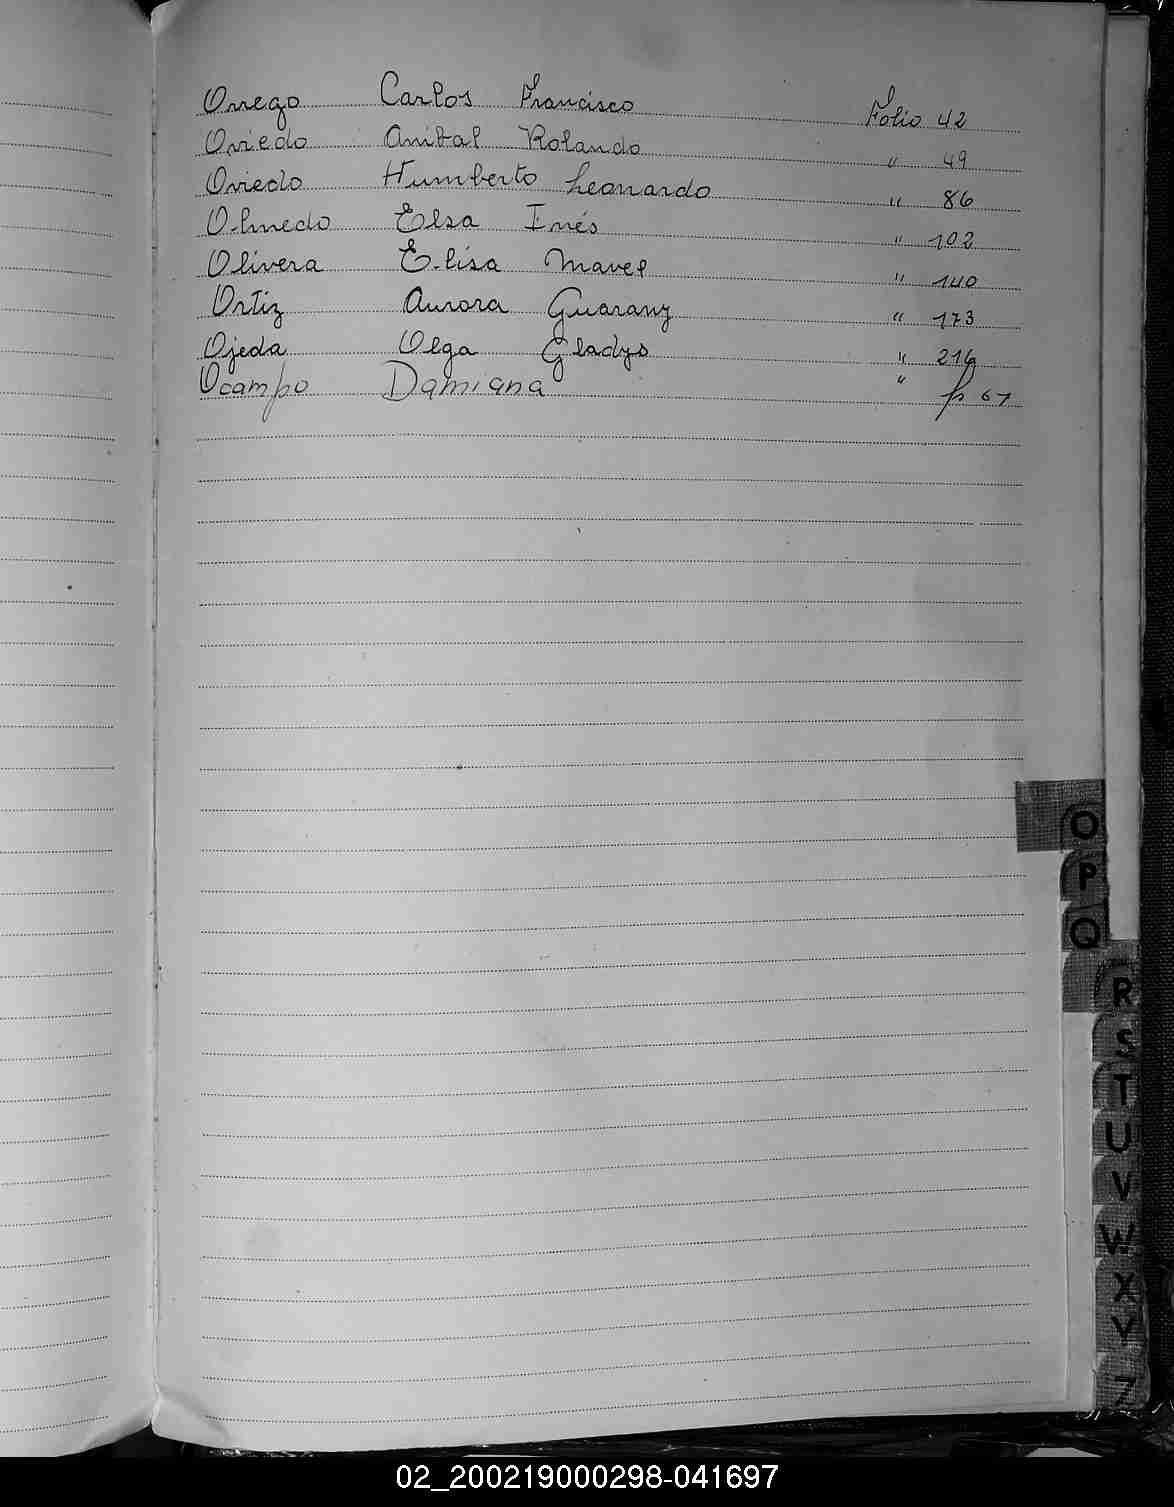 Orrego Carlos Francisco Folio 42
Oviedo Anibal Rolando " 49
Oviedo Humberto Leonardo " 86
Olmedo Elsa Inés " 102
Olivera Elisa Mavel " 140
Ortiz Aurora Guarany " 173
Ojeda Olga Gladys " 216
Ocampo Damiana " fs 61
O
P
Q
R
S
T
U
V
W
X
Y
Z
02_200219000298-041697